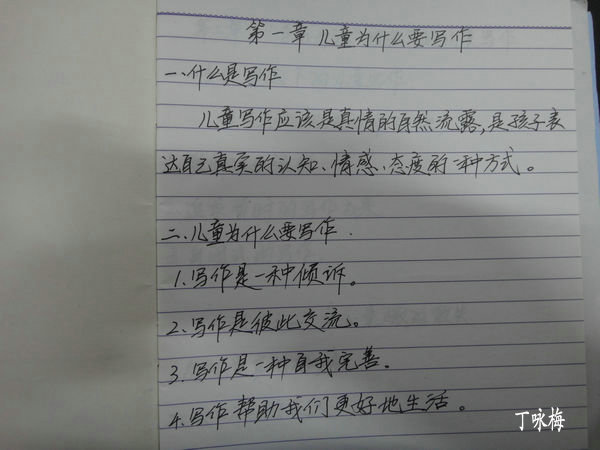 第一章 儿童为什么要写作
一、什么是写作
儿童写作应该是真情的自然流露,是孩子表
达自己真实的认知、情感、态度的一种方式。
二、儿童为什么要写作.
1.写作是一种倾诉。
2.写作是彼此交流。
3.写作是一种自我完善。
4.写作帮助我们更好地生活。
丁咏梅